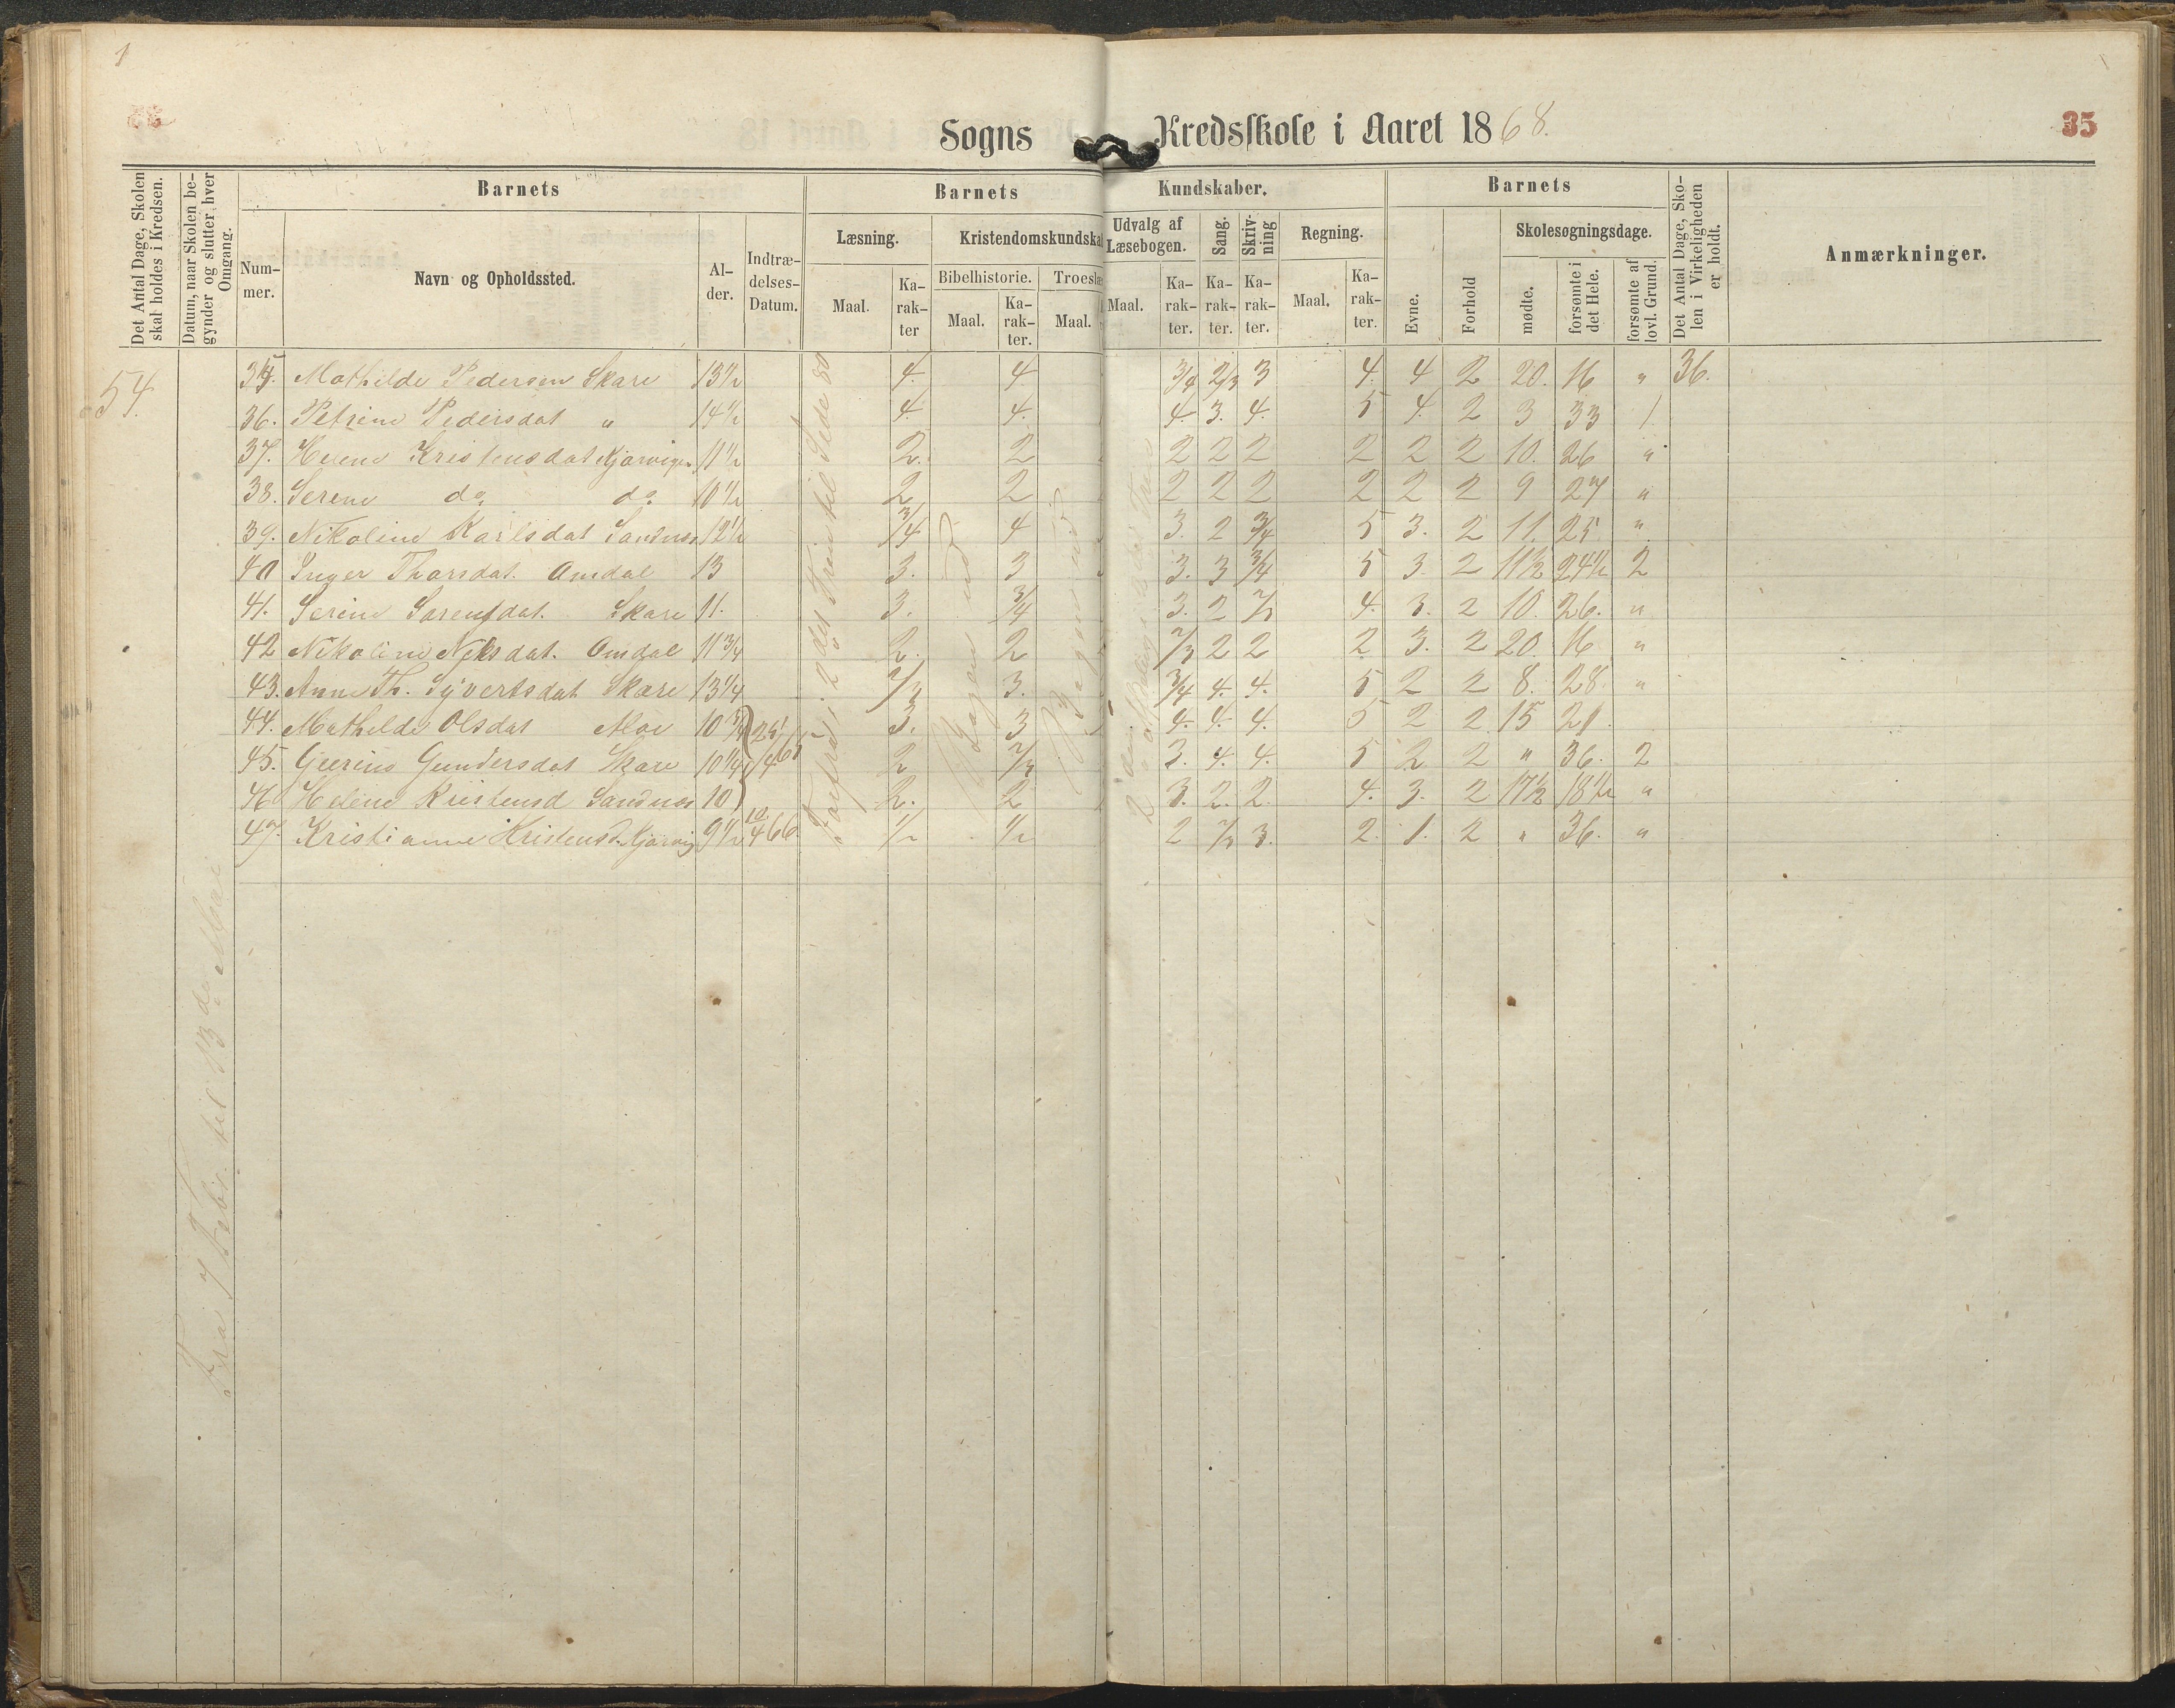 1
Sogns Kredsskole i Aaret 1868.
35
Det Antal Dage, Skolen skal holdes i Kredsen.
Datum, naar Skolen begynder og slutter hver Omgang.
Barnets
Barnets Kundskaber.
Barnets
Det Antal Dage, Skolen i Virkeligheden er holdt.
Anmærkninger.
Nummer.
Navn og Opholdssted.
Alder.
Indtrædelses-Datum.
Læsning.
Kristendomskundskab
Udvalg af Læsebogen.
Sang.
Skrivning
Regning.
Evne.
Forhold
Skolesøgningsdage.
Bibelhistorie.
Troeslæ
Maal.
Karakter
Maal.
Karakter.
Maal.
Maal.
Karakter.
Karakter.
Karakter.
Maal.
Karakter.
mødte.
forsømte i det Hele.
forsømte af lovl. Grund.
54.
Fra 7 Febr. til 13de
35. Mathilde Pedersen Skare 13½ 4. 4 3/4 2/3 3 4. 4 2 20. 16 " 36.
36. Petrine Pedersdat " 14½ 4. 4. 4. 3. 4. 5 4. 2 3 33 1.
37. Helene Kristensdat Kjørvigen 11½ 2. 2 2 2 2 2 2 2 10. 26 "
38. Serene do do 10½ 2 2 2 2 2 2 2 2 9 27 "
39. Nikoline Karlsdat Sandnes 12½ 3/4 4 3. 2 3/4 5 3. 2 11. 25 "
40 Inger Thorsdat. Omdal 13 3. 3 3. 3 3/4 5 3. 2 11½ 24½ 2
41. Serine Sørensdat. Skare 11. 3. 3/4 3. 2 2/3 4. 3. 2 10. 26. "
42 Nikoline Nilsdat. Omdal 11¾ 2. 2 2/3 2 2 2 3. 2 20. 16 "
43. Anne Th. Syvertsdat Skare 13¼ 2/3 3. 3/4 4. 4. 5 2 2 8. 28 "
44. Mathilde Olsdat 10¾ 3. 3 4. 4. 4. 5 2 2 15 21.
45. Gunders dat Skare 10¼ 2 2/3 3. 4. 4. 5 2 2 " 36. 2
46 Helene Kristensd Sandnes 10 2. 2 3. 2. 2. 4. 3. 2 17½ 18½ "
47. Kristianne Kristensd. Kjørvig 9½ 10/4 66. 1/2 1/2 2 2/3 3. 2. 1. 2 " 36. "
i 2den til Side 80
Bogen ud
Bogen ud